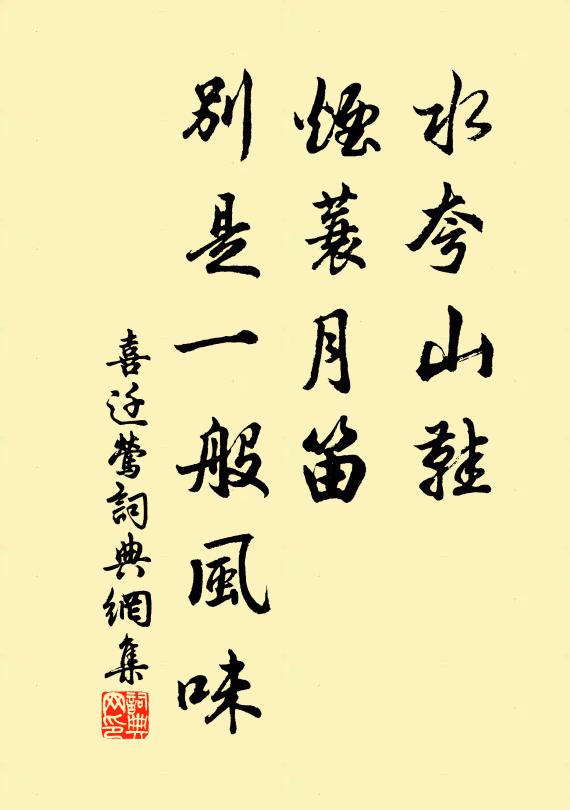 水夸山鞋
煙蓑月笛
別是一般風味
喜迁鶯詞典網集
詞典
网印